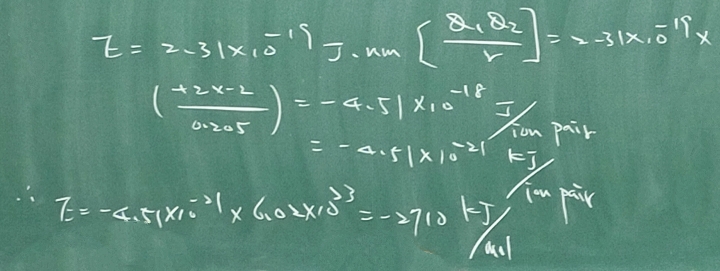 E = 2.31×10⁻¹⁹ J·nm [Q₁Q₂/r] = 2.31×10⁻¹⁹ ×
(+2×-2/0.205) = -4.51×10⁻¹⁸ J/ion pair
= -4.51×10⁻²¹ kJ/ion pair
∴ E = -4.51×10⁻²¹ × 6.02×10²³ = -2710 kJ/mol